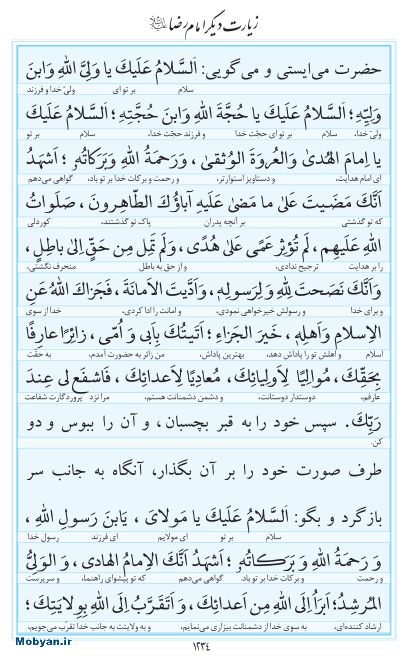 زیارت دیگر امام رضا علیه‌السلام
حضرت می‌ایستی و می‌گویی: اَلسَّلامُ عَلَیكَ یا وَلِیَّ اللهِ وَابنَ
سلام بر تو ای ولیّ خدا و فرزند
وَلِیِّهِ؛ اَلسَّلامُ عَلَیكَ یا حُجَّةَ اللهِ وَابنَ حُجَّتِهِ؛ اَلسَّلامُ عَلَیكَ
ولیّ خدا، سلام بر تو ای حجّت خدا و فرزند حجّت خدا، سلام بر تو
یا اِمامَ الهُدیٰ وَالعُروَةَ الوُثقیٰ، وَرَحمَةُ اللهِ وَبَرَکاتُهُ؛ اَشهَدُ
ای امام هدایت، و دستاویز استوارتر، و رحمت و برکات خدا بر تو باد، گواهی می‌دهم
اَنَّكَ مَضَیتَ عَلیٰ ما مَضیٰ عَلَیهِ آباؤُكَ الطّاهِرونَ، صَلَواتُ
که تو گذشتی بر آنچه پدران پاک تو گذشتند، کوردلی
اللهِ عَلَیهِم، لَم تُؤثِر عَمًی عَلیٰ هُدًی، وَلَم تَمِل مِن حَقٍّ اِلیٰ باطِلٍ،
را بر هدایت ترجیح ندادی، و از حق به باطل منحرف نگشتی،
وَاَنَّكَ نَصَحتَ لِلّٰهِ وَلِرَسولِهِ، وَاَدَّیتَ الاَمانَةَ، فَجَزاكَ اللهُ عَنِ
و برای خدا و رسولش خیرخواهی نمودی، و امانت را ادا کردی، خدا از سوی
الاِسلامِ وَاَهلِهِ، خَیرَ الجَزاءِ؛ اَتَیتُكَ بِاَبی وَ اُمّی، زائِرًا عارِفًا
اسلام و اهلش تو را پاداش دهد، بهترین پاداش، من زائر به حضورت آمدم، به حقّت
بِحَقِّكَ، مُوالِیًا لِاَولِیائِكَ، مُعادِیًا لِاَعدائِكَ، فَاشفَع لی عِندَ
عارفم، دوستدار دوستانت، و دشمن دشمنانت هستم، مرا نزد پروردگارت شفاعت
رَبِّكَ. سپس خود را به قبر بچسبان، و آن را ببوس و دو
کن.
طرف صورت خود را بر آن بگذار، آنگاه به جانب سر
بازگرد و بگو: اَلسَّلامُ عَلَیكَ یا مَولایَ، یَابنَ رَسولِ اللهِ،
سلام بر تو ای مولایم ای فرزند رسول خدا
وَ رَحمَةُ اللهِ وَ بَرَکاتُهُ؛ اَشهَدُ اَنَّكَ الاِمامُ الهادی، وَ الوَلِیُّ
و رحمت و برکات خدا بر تو باد. گواهی می‌دهم که تو پیشوای راهنما، و سرپرست
المُرشِدُ؛ اَبرَاُ اِلَی اللهِ مِن اَعدائِكَ، وَ اَتَقَرَّبُ اِلَی اللهِ بِوِلایَتِكَ؛
ارشاد کننده‌ای. به سوی خدا از دشمنانت بیزاری می‌نمایم، و به ولایتت به جانب خدا تقرّب می‌جویم.
۱۲۳۴
Mobyan.ir